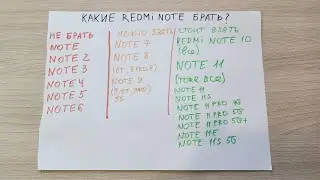 КАКИЕ REDMI NOTE БРАТЬ?
НЕ БРАТЬ
NOTE
NOTE 2
NOTE 3
NOTE 4
NOTE 5
NOTE 6
МОЖНО ВЗЯТЬ
NOTE 7
NOTE 8
NOTE 9
СТОИТ ВЗЯТЬ
REDMI NOTE 10
(Все)
NOTE 11
(ТОЖЕ ВСЕ)
NOTE 11
NOTE 11S
NOTE 11 PRO 4G
NOTE 11 PRO 5G
NOTE 11 PRO 5G+
NOTE 11E
NOTE 11S 5G